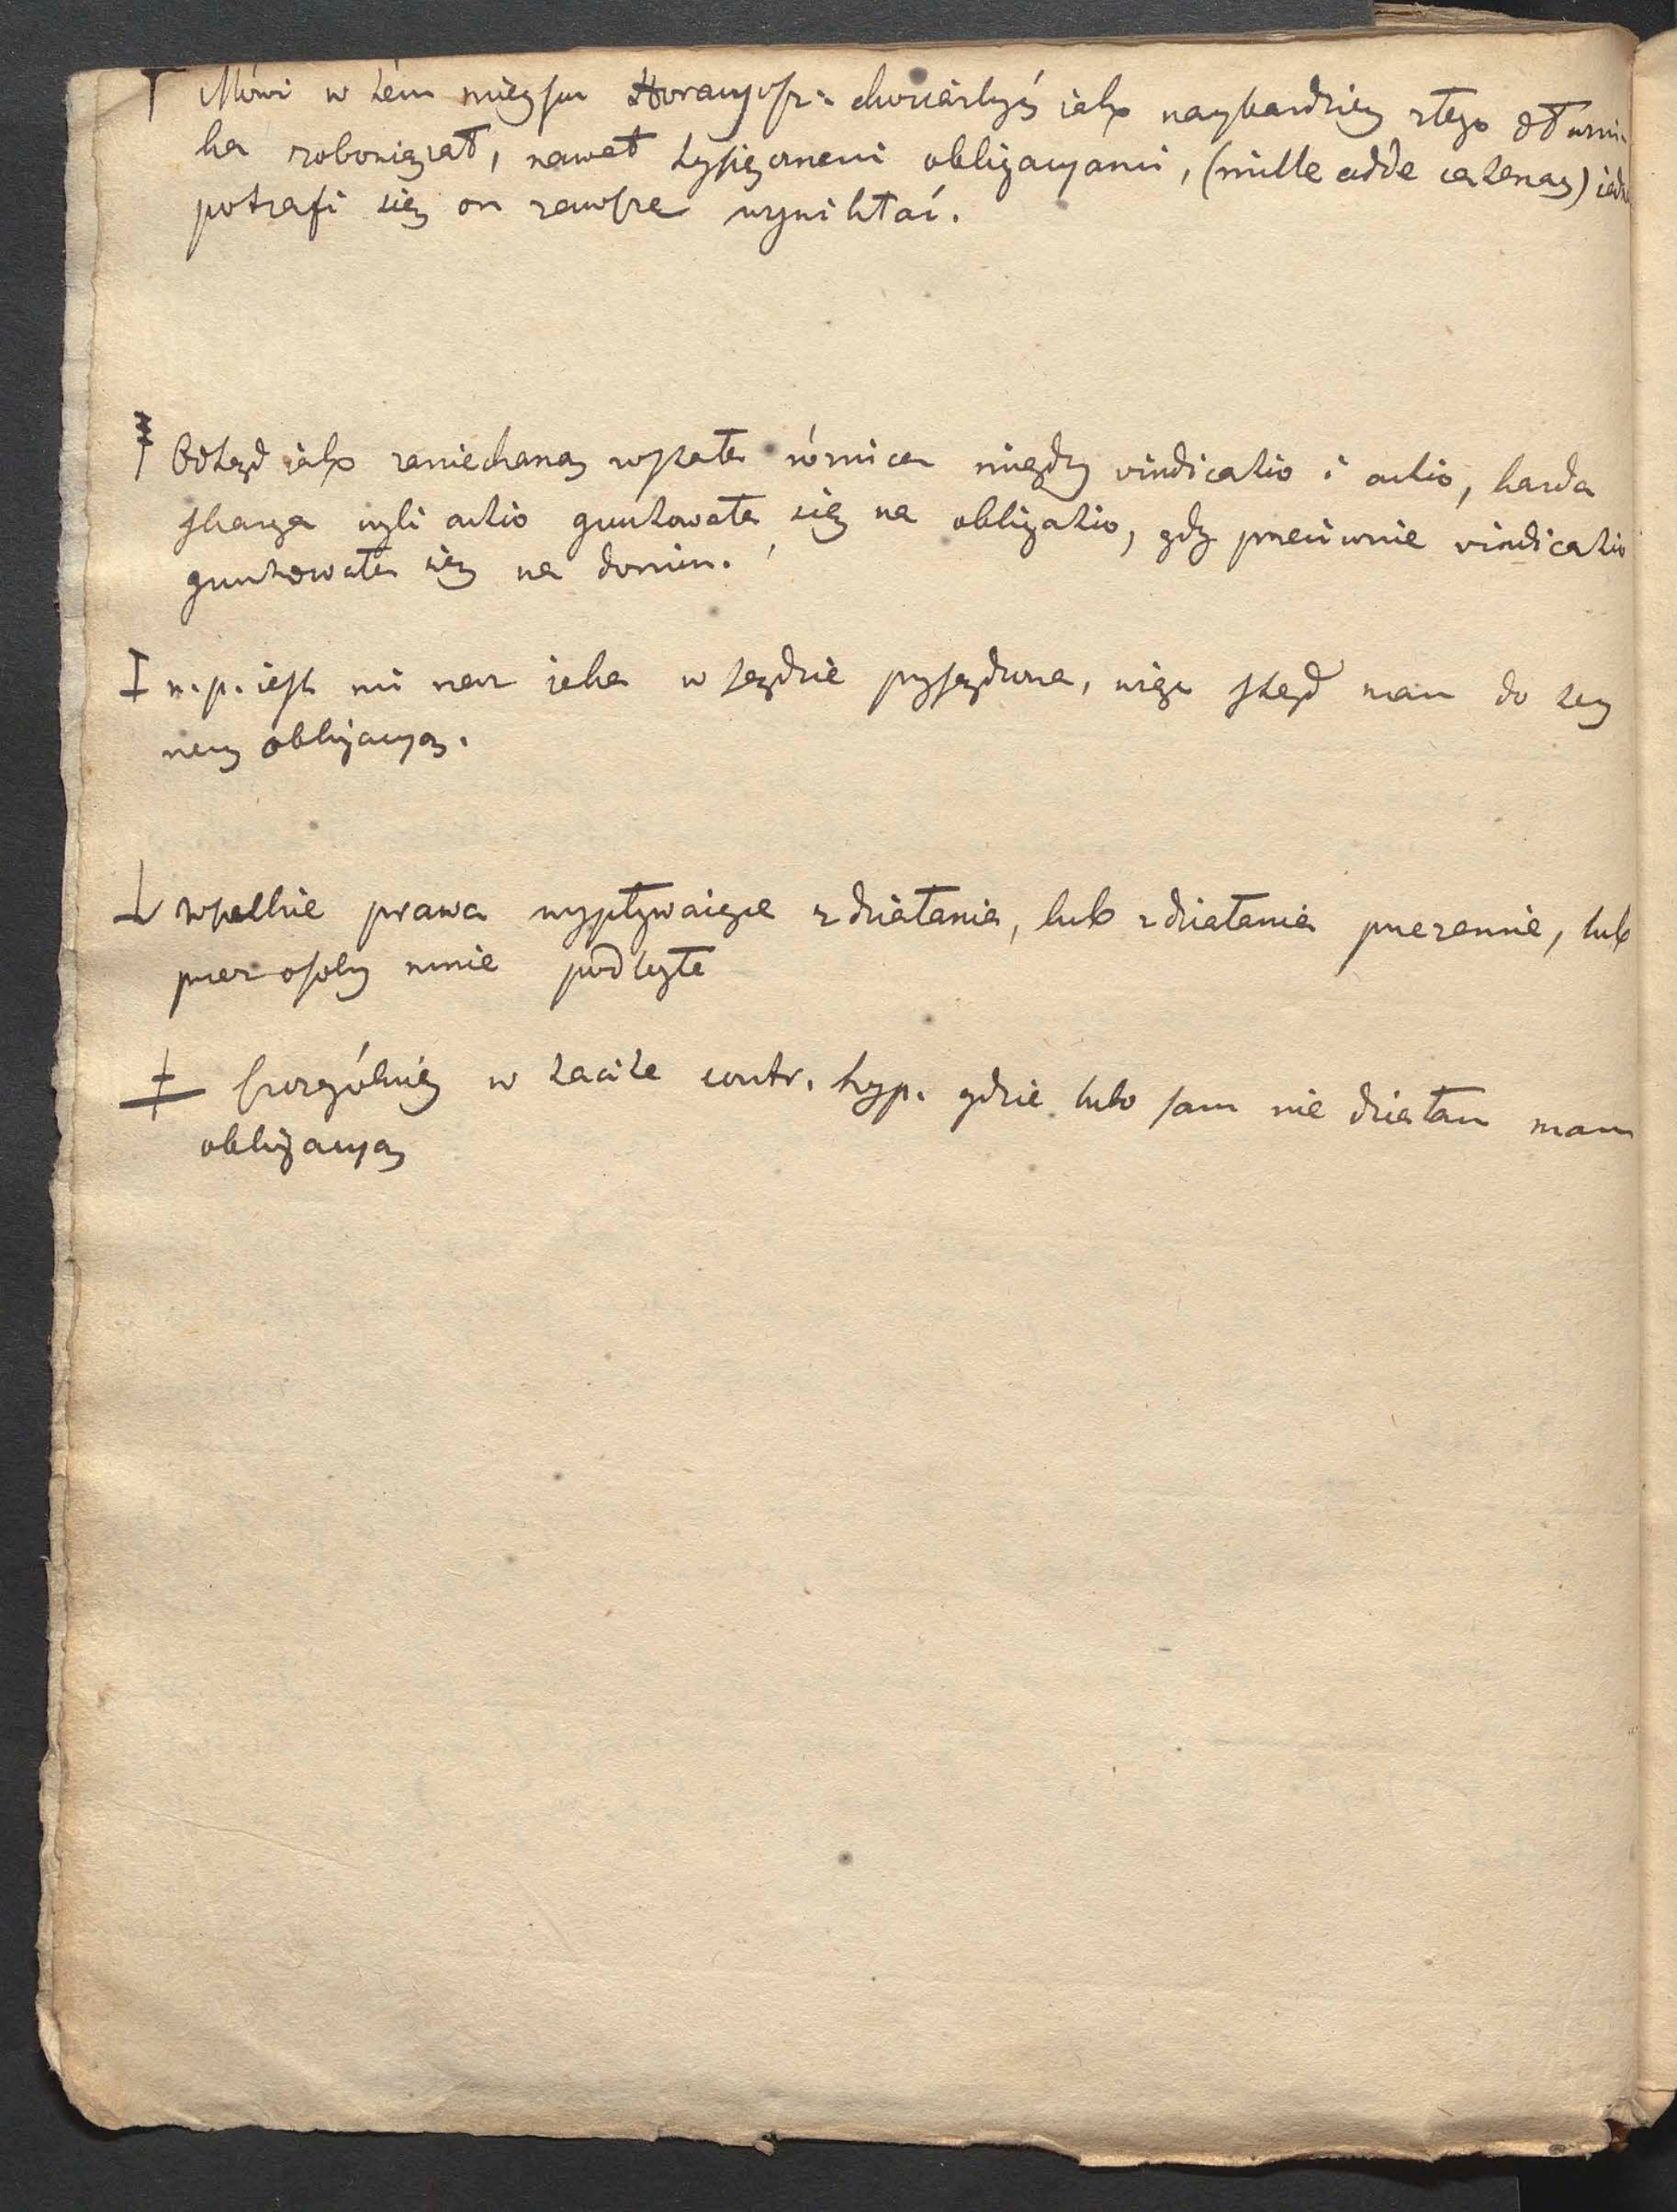 Mówi w tém mieyscu Horacyusz: chociażbyś iako naybardziey złego dłużni-
ka zobowiązał, nawet tysiącznemi obligacyami, (mille adde catenas) iedn
potrafi się on zawsze wywikłać.
Odtąd iako zaniechaną została różnica między vindicatio i actio, każda
skarga czyli actio gruntowała się na obligatio, gdy przeciwnie vindicatio
gruntowała się na domin.
n. p. iest mi rzecz iaka w sądzie przysądzona, więc stąd mam do tey
rzeczy obligacyą.
wszelkie prawa wypływaiące z działania, lub z działania przezemnie, lub
przez osoby mnie podległe
szczególniey w tacite contr. hyp. gdzie lubo sam nie działam mam
obligacyą